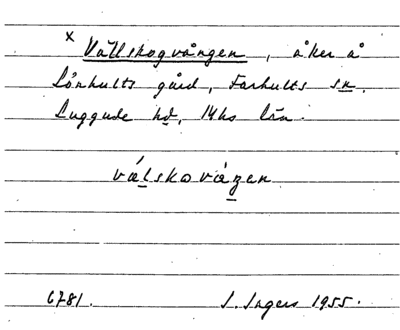 x Vällskogvången, åker å
Lönhults gård, Farhults sn.
Luggude hd, Mhs län.
válskovàzen
6781. I. Ingers 1955.